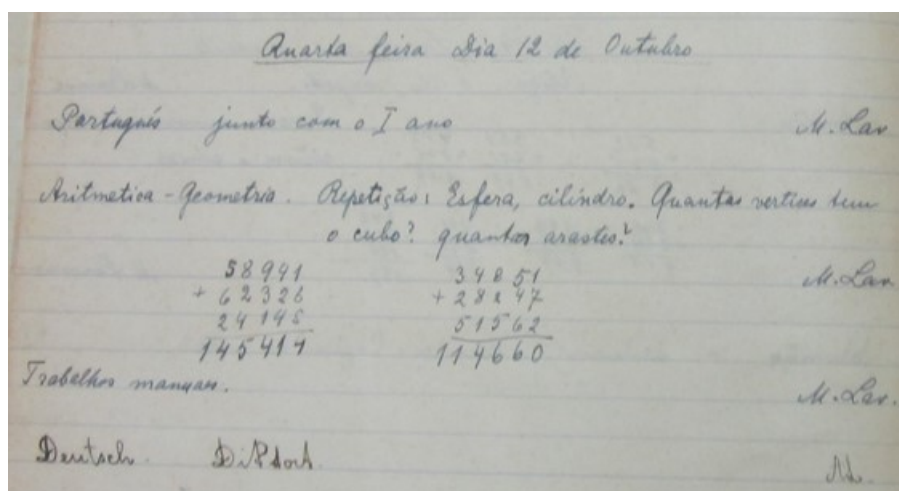 Quarta feira Dia 12 de Outubro
Portugués junto com o I ano M. Lav
Aritmetica - Geometria. Repetição: Esfera, cilindro. Quantas vertices tem
o cubo? quantas arastes?
58941 34851 M. Lav
+ 62326 + 28247
24145 51562
145411 114660
Trabalhos manuaes. M. Lav.
Deutsch.